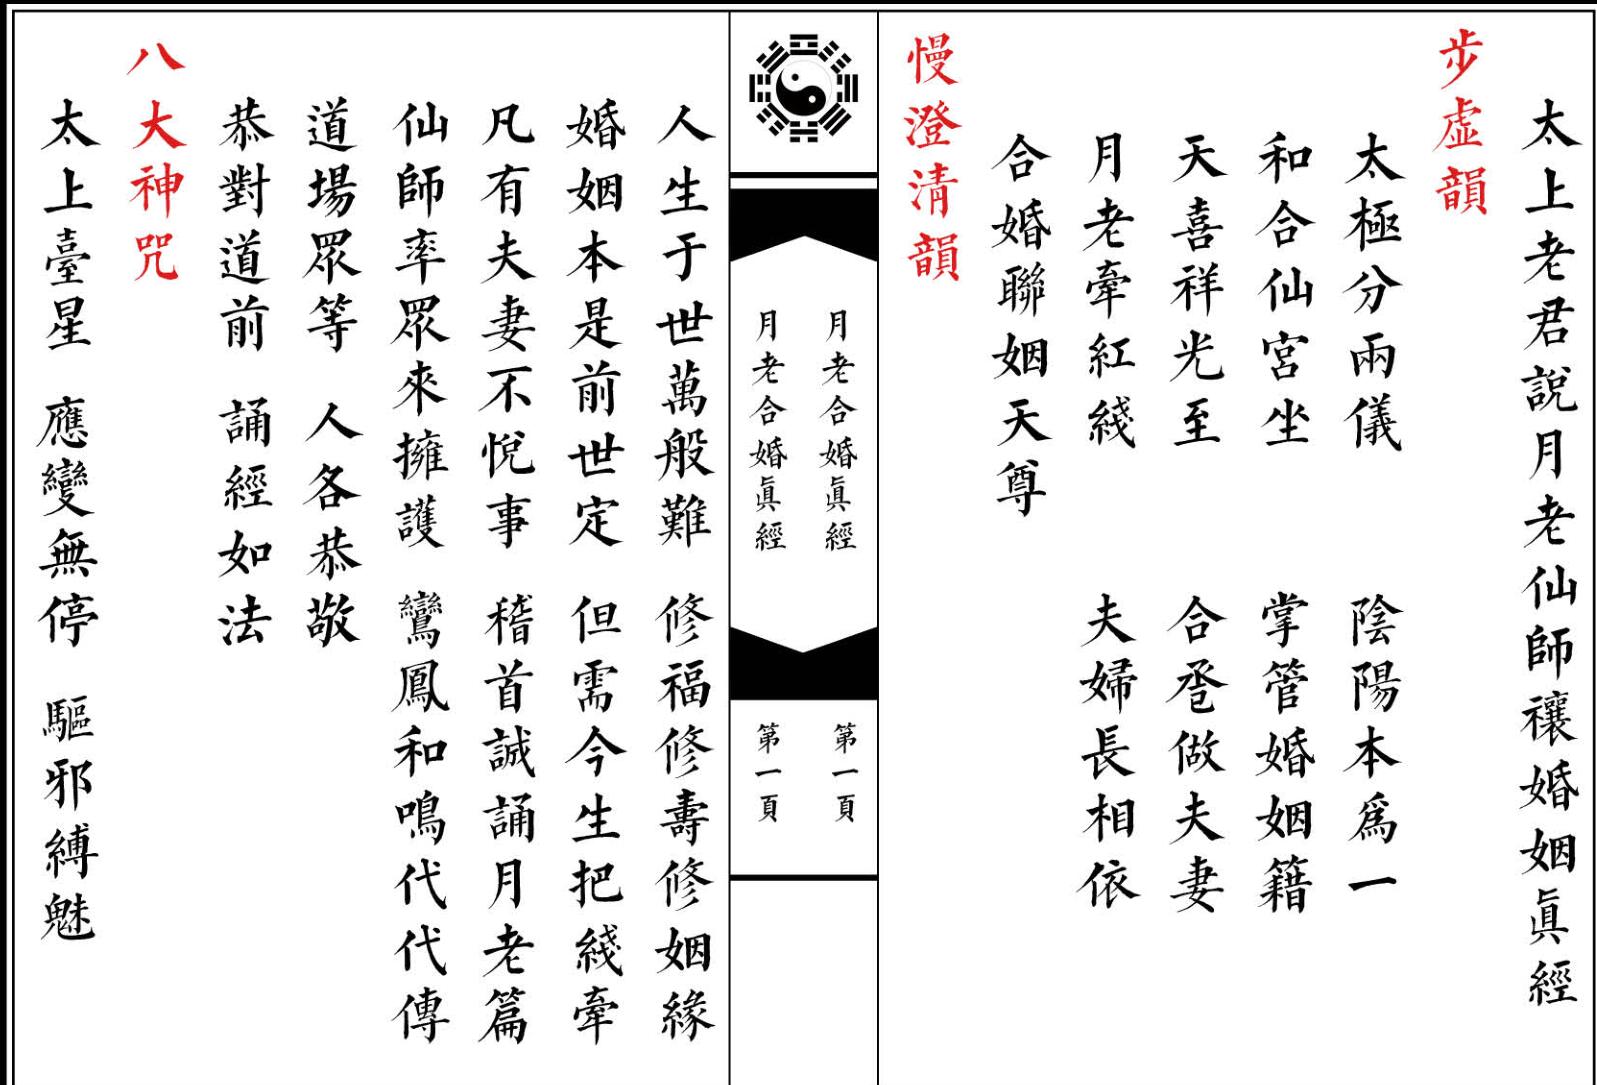 太上老君說月老仙師禳婚姻眞經
步虛韻
太極分兩儀　陰陽本爲一
和合仙宮坐　掌管婚姻籍
天喜祥光至　合卺做夫妻
月老牽紅綫　夫婦長相依
合婚聯姻天尊
慢澄清韻
月老合婚眞經　第一頁
月老合婚眞經　第一頁
人生于世萬般難　修福修壽修姻緣
婚姻本是前世定　但需今生把綫牽
凡有夫妻不悅事　稽首誠誦月老篇
仙師率眾來擁護　鸞鳳和鳴代代傳
道場眾等　人各恭敬
恭對道前　誦經如法
八大神咒
太上臺星　應變無停　驅邪縛魅